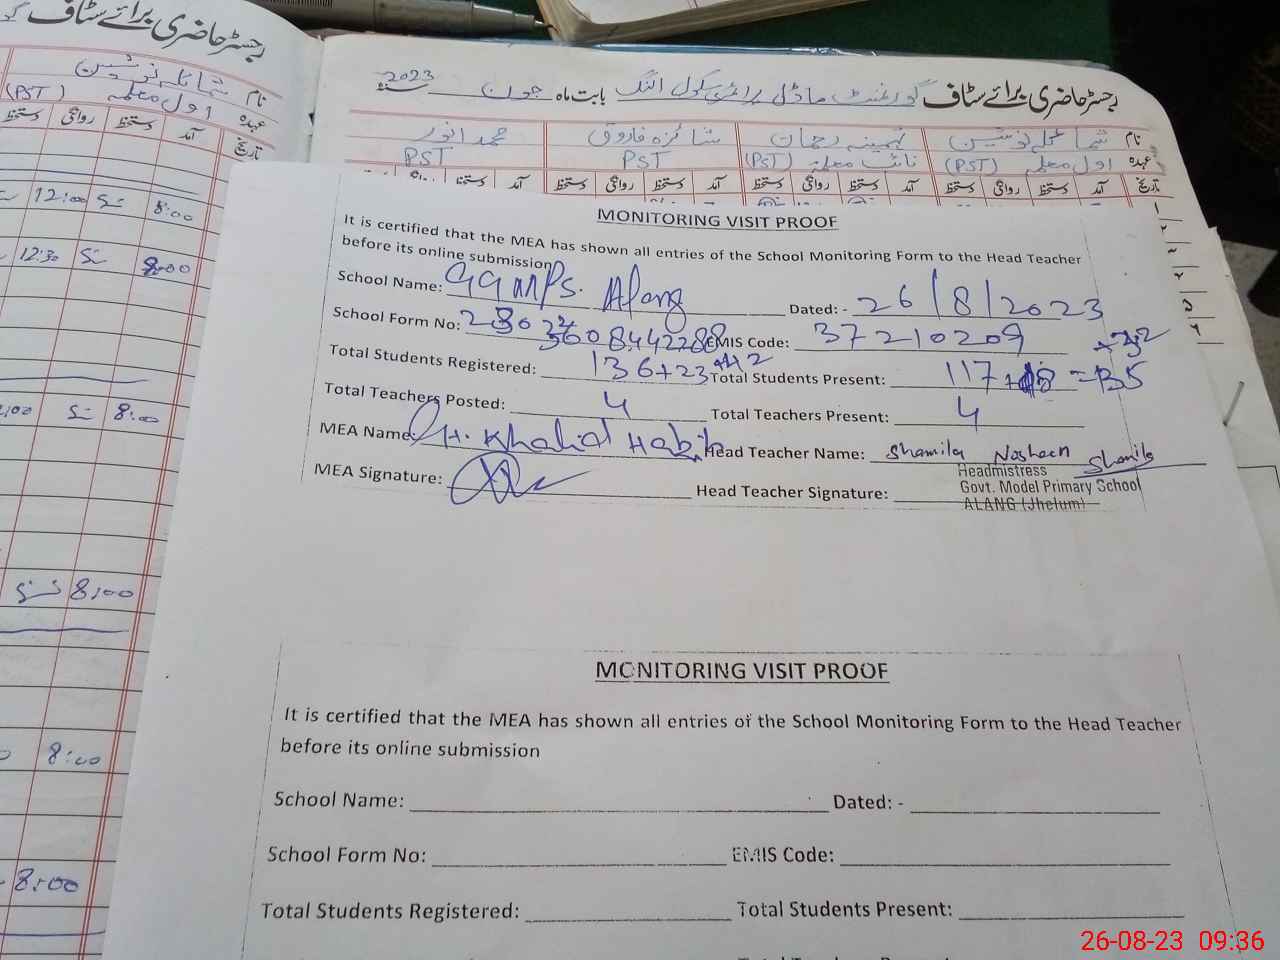 رجسٹر حاضری برائے سٹاف
نام شمائلہ نوشین
عہدہ اول معلمہ (PST)
تاریخ آمد دستخط روانگی دستخط
8:00 12:00
8:00 12:30
8:00
8:00
8:00
8:00
رجسٹر حاضری برائے سٹاف گورنمنٹ ماڈل پرائمری سکول النگ بابت ماہ جون سنہ 2023
نام شمائلہ نوشین تہمینہ رحمان شائزہ فاروق محمد انور
عہدہ اول معلمہ (PST) نائب معلمہ (PST) PST PST
تاریخ آمد دستخط روانگی دستخط آمد دستخط روانگی دستخط آمد دستخط روانگی دستخط آمد دستخط روانگی
MONITORING VISIT PROOF
It is certified that the MEA has shown all entries of the School Monitoring Form to the Head Teacher
before its online submission
School Name: GGMPS. Alang Dated: - 26/8/2023
School Form No: EMIS Code: 37210209
Total Students Registered: 136+23 Total Students Present: 117+18 =135
Total Teachers Posted: 4 Total Teachers Present: 4
MEA Name: Khalid Habib Head Teacher Name: Shamila Nosheen
MEA Signature: Head Teacher Signature:
Headmistress
Govt. Model Primary School
ALANG (Jhelum)
MONITORING VISIT PROOF
It is certified that the MEA has shown all entries of the School Monitoring Form to the Head Teacher
before its online submission
School Name: Dated: -
School Form No: EMIS Code:
Total Students Registered: Total Students Present:
26-08-23 09:36